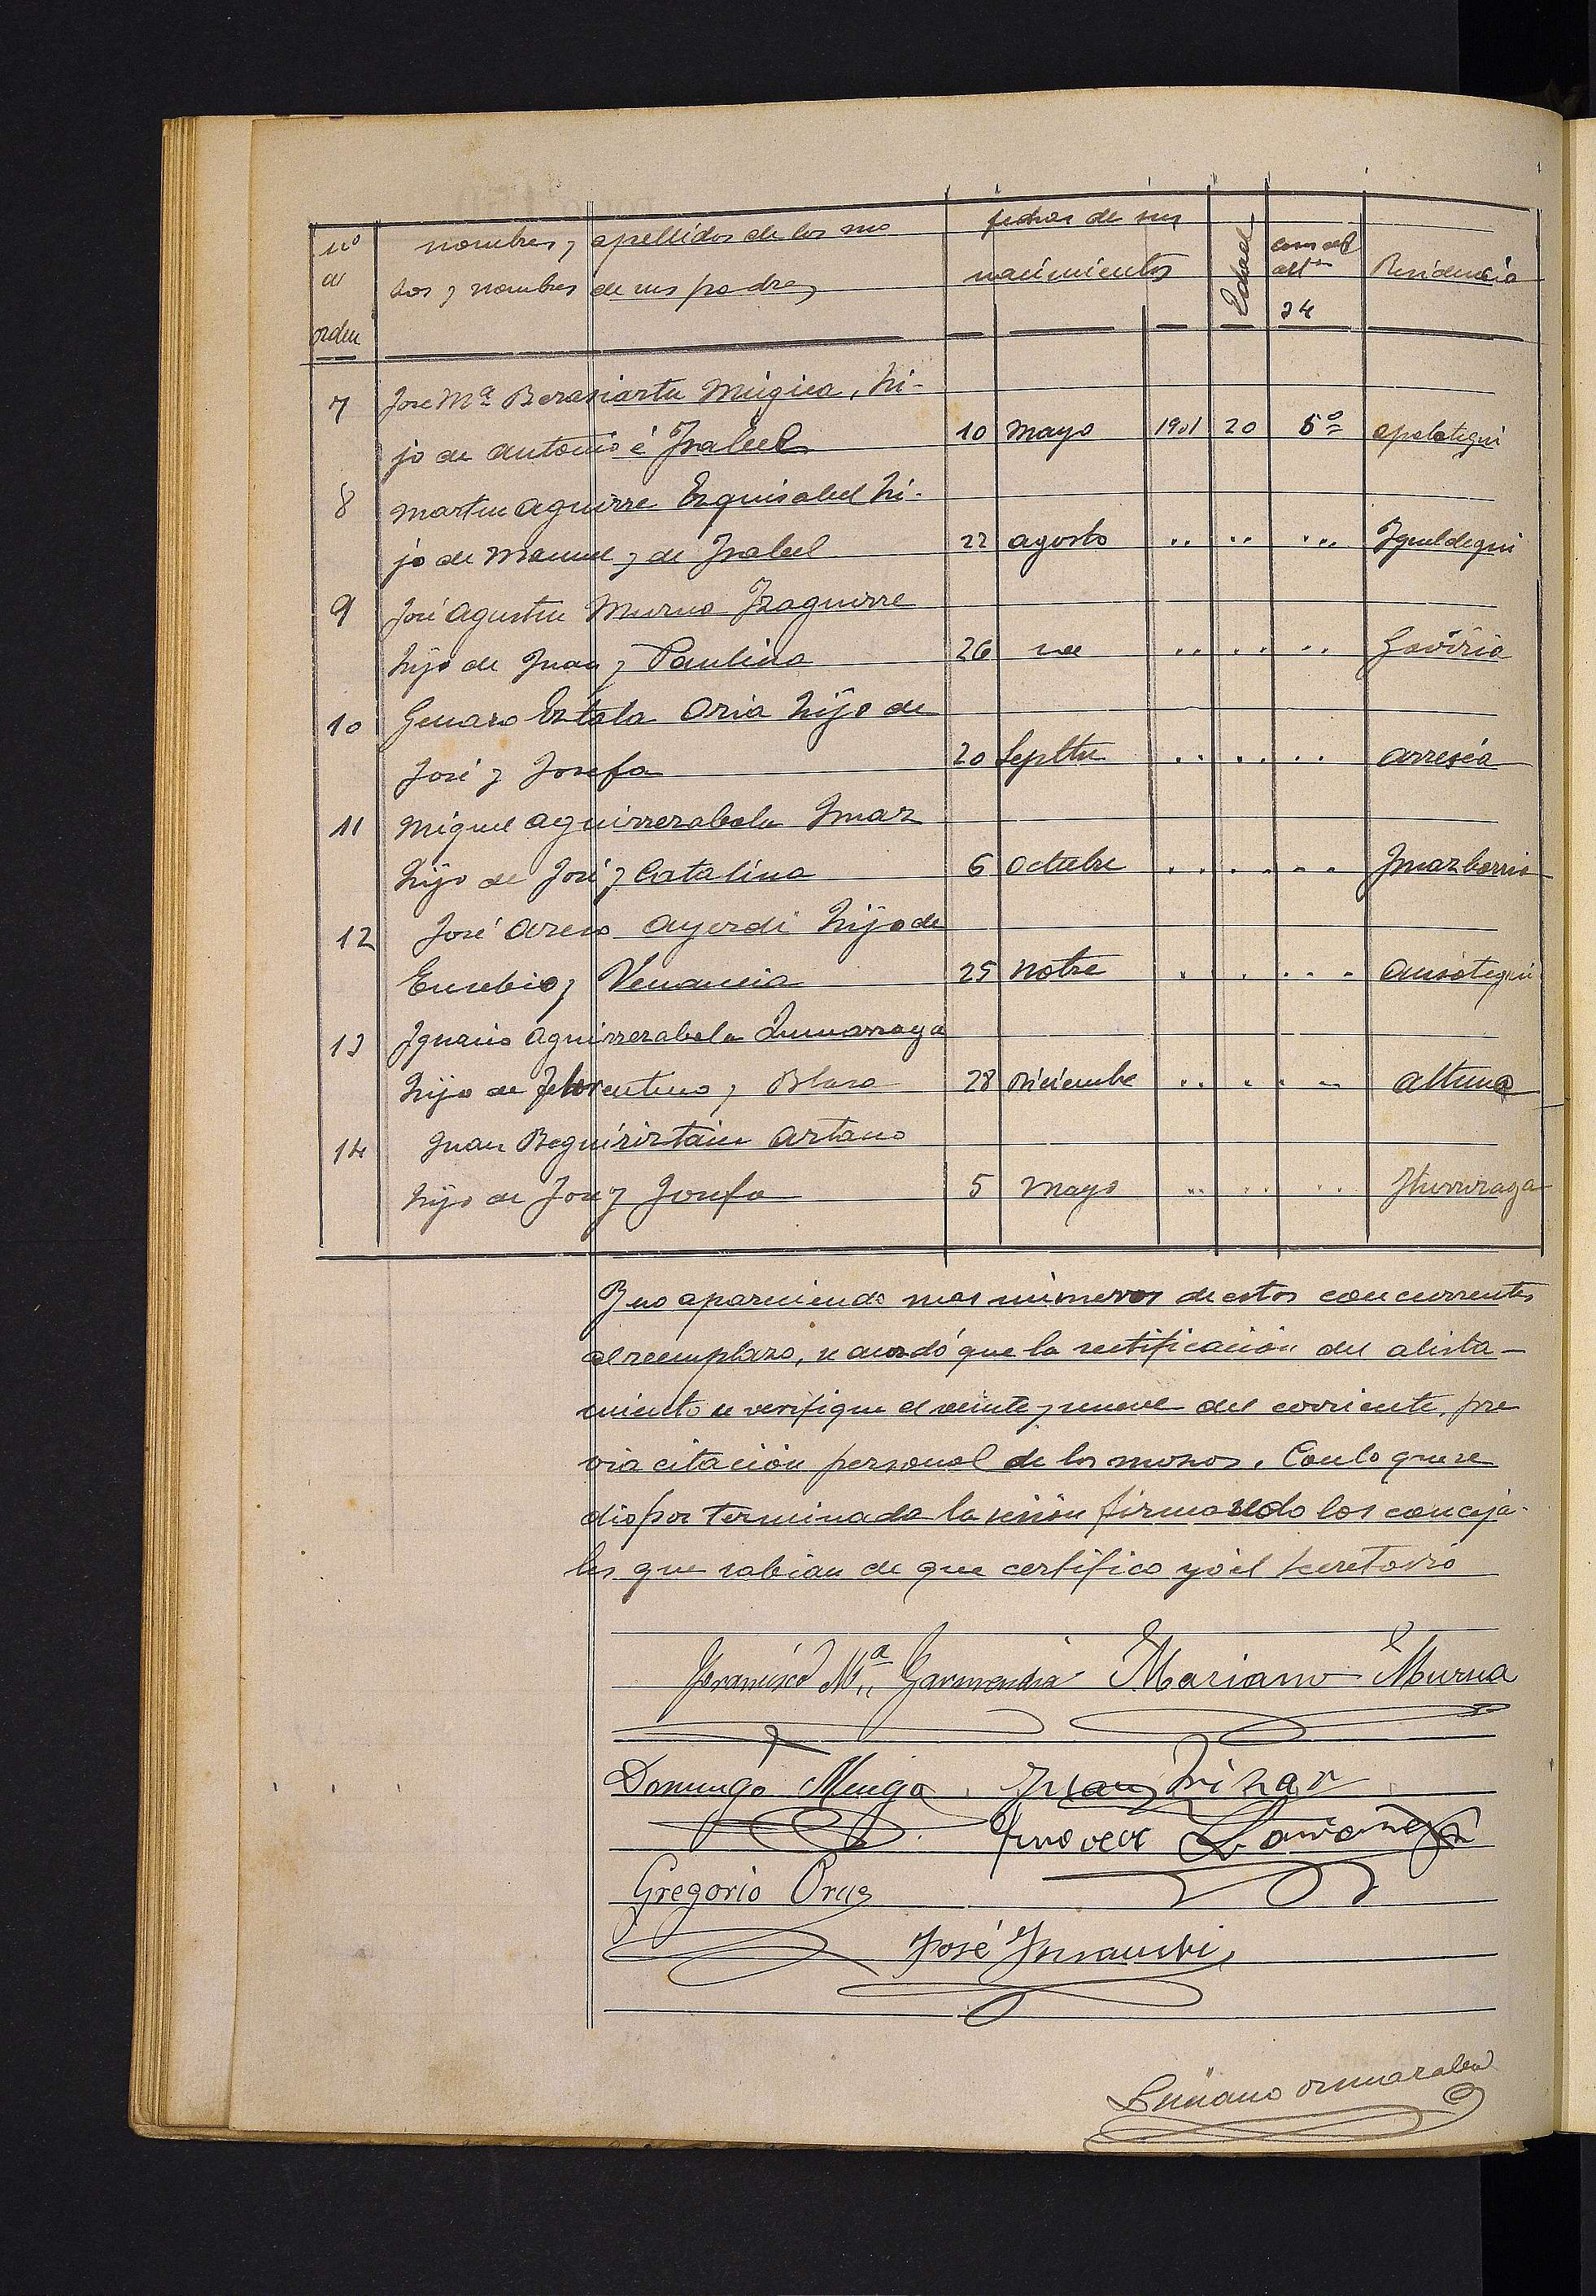 nº de orden
nombres y apellidos de los mo
sos y nombres de sus padres
fechas de sus
nacimientos
Edad
caso del
artº
34
Residencia
7 José Mª Berasiartu Múgica, hi-
jo de Antonio é Isabel 10 Mayo 1901 20 5º apalategui
8 Martin Aguirre Ezquisabel hi-
jo de Manuel y de Isabel 22 agosto " " " Igueldegui
9 José Agustin Murua Izaguirre
hijo de Juan y Paulina 26 " " " Gaviria
10 Genaro Eztala Oria hijo de
José y Josefa 20 Septbre " " " arreséa
11 Miguel Aguirrezabala Imaz
hijo de José y Catalina 6 Octubre " " " Imazberria
12 José Areso Ayerdi hijo de
Eusebio y Venancia 25 Nobre " " "
13 Ignacio Aguirrezabala Zumarraga
hijo de Florentino y Blasa 28 Diciembe " " " altuna
14 Juan Beguiristain Artano
hijo de José y Josefa 5 Mayo " " " Iturriraga
Y no apareciendo mas números de estos concurrentes
al reemplazo, se acordó que la rectificación del alista-
miento se verifique el veinte y nueve del corriente, pre
via citación personal de los mosos. Con lo que se
dio por terminada la sesión firmando los conceja-
les que sabian de que certifico yo el secretario
Francisco Mª Garmendia Mariano Murua
Domingo Mugica Juan Irizar
Gregorio Oruz
José Insausti
Luciano Ormazabal